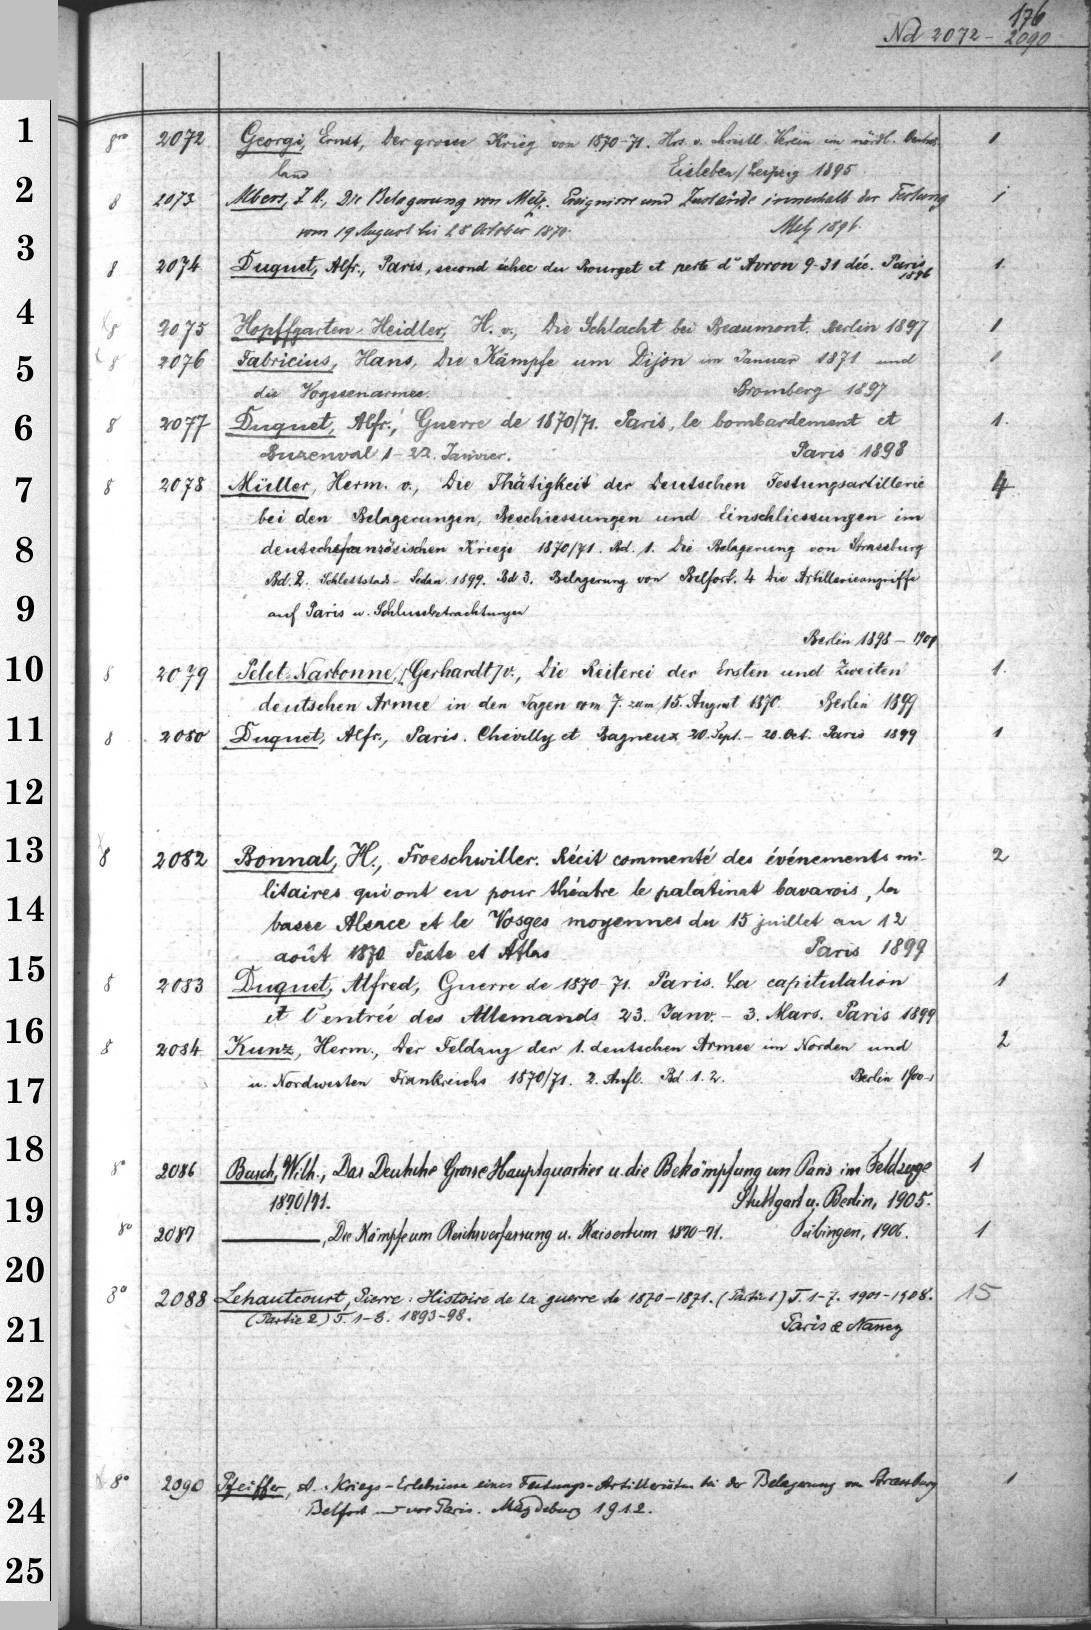 176
Nd 2072 - 2090
1
8vo 2072 Georgi, Ernst, Der grosse Krieg von 1870-71. Hrs. v. christl. Verein im nördl. Deutsch- 1
land Eisleben/Leipzig 1895
2
8 2073 Albers, J. A., Die Belagerung von Metz. Ereignisse und Zustände innerhalb der Festung 1
vom 19 August bis 28 October 1870. Metz 1896.
3
8 2074 Duquet, Alfr., Paris, second échec du Bourget et perte d'Avron 9-31 déc. Paris 1896 1.
4
8 2075 Hopffgarten-Heidler, H. v., Die Schlacht bei Beaumont. Berlin 1897 1
5
8 2076 Fabricius, Hans, Die Kämpfe um Dijon im Januar 1871 und 1
die Vogesenarmee. Bromberg 1897
6
8 2077 Duquet, Alfr., Guerre de 1870/71. Paris, le bombardement et 1.
Buzenval 1-22. Janvier. Paris 1898
7
8 2078 Müller, Herm. v., Die Thätigkeit der Deutschen Festungsartillerie 4
bei den Belagerungen, Beschiessungen und Einschliessungen im
8
deutschfranzösischen Kriege 1870/71. Bd. 1. Die Belagerung von Strassburg
Bd. 2. Schlettstadt - Sedan. 1899. Bd 3. Belagerung von Belfort. 4 Die Artillerieangriffe
9
auf Paris u. Schlussbetrachtungen
Berlin 1898 - 1901
10
8 2079 Pelet-Narbonne, /Gerhardt/ v., Die Reiterei der Ersten und Zweiten 1.
deutschen Armee in den Tagen vom 7. zum 15. August 1870. Berlin 1899
11
8 2080 Duquet, Alfr., Paris. Chevilly et Bagneux 20. Sept. - 20. Oct. Paris 1899 1
12
13
8 2082 Bonnal, H., Froeschwiller. Récit commenté des événements mi- 2
litaires qui ont eu pour théatre le palatinat bavarois, la
14
basse Alsace et le Vosges moyennes du 15 juillet au 12
août 1870. Texte et Atlas Paris 1899
15
8 2083 Duquet, Alfred, Guerre de 1870-71. Paris. La capitulation 1
et l'entrée des Allemands 23. Janv. - 3. Mars. Paris 1899
16
8 2084 Kunz, Herm., Der Feldzug der 1. deutschen Armee im Norden und 2
u. Nordwesten Frankreichs 1870/71. 2. Aufl. Bd. 1. 2. Berlin 1900-1
17
18
8° 2086 Busch, Wilh., Das Deutsche Grosse Hauptquartier u. die Bekämpfung von Paris im Feldzuge 1
1870/71. Stuttgart u. Berlin, 1905.
19
8° 2087 ———, Die Kämpfe um Reichsverfassung u. Kaisertum 1870-71. Tübingen, 1906. 1
20
8° 2088 Lehautcourt, Pierre: Histoire de la guerre de 1870-1871. (Partie 1) T. 1-7. 1901-1908. 15
(Partie 2) T. 1-8. 1893-98. Paris & Nancy
21
22
23
8° 2090 Pfeiffer, A. Kriegs-Erlebnisse eines Festungs-Artilleristen bei der Belagerung von Strassburg 1
24
Belfort und vor Paris. Magdeburg 1912.
25